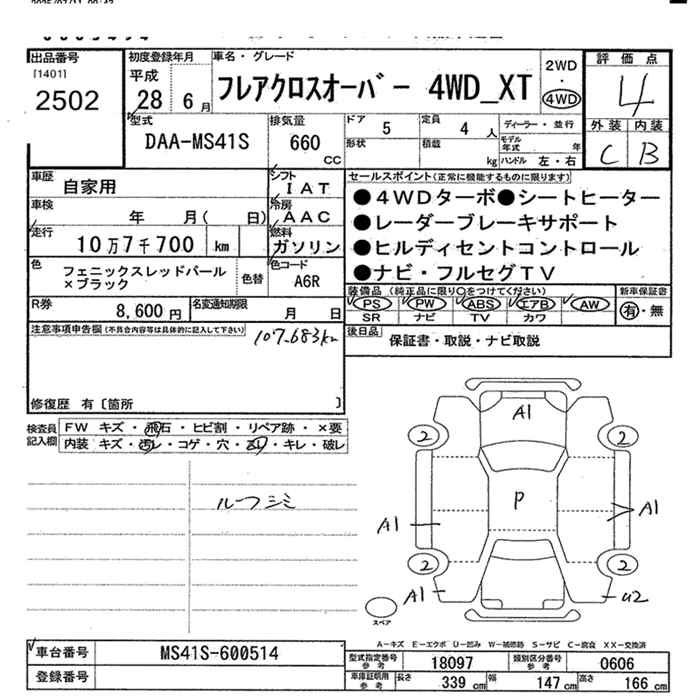 2025/07/11 09:42
出品番号
[1401]
2502
初度登録年月
平成
28 6月
車名・グレード
フレアクロスオーバー 4WD_XT
2WD
・
4WD
評価点
4
外装 内装
C B
型式
DAA-MS41S
排気量
660
CC
ドア 5
定員 4 人
形状
積載 kg
ディーラー・並行
モデル年式 年
ハンドル 左・右
車歴
自家用
シフト
IAT
車検
年 月( 日)
冷房
AAC
走行
10万7千700 km
燃料
ガソリン
色
フェニックスレッドパール
×ブラック
色替
色コード
A6R
R券
8,600 円
名変通知期限
月 日
セールスポイント(正常に機能するものに限ります)
●4WDターボ●シートヒーター
●レーダーブレーキサポート
●ヒルディセントコントロール
●ナビ・フルセグTV
装備品(純正品に限り○をつけてください)
PS PW ABS エアB AW
SR ナビ TV カワ
新車保証書
有・無
後日品
保証書・取説・ナビ取説
注意事項申告欄(不具合内容等は具体的に記入して下さい)
107.683km
修復歴 有〔箇所 〕
検査員記入欄
FW キズ・飛石・ヒビ割・リペア跡・×要
内装 キズ・汚れ・コゲ・穴・ヌレ・キレ・破レ
ルーフシミ
A1
2 2
P
A1 A1
2 2
A1 U2
スペア
A-キズ E-エクボ U-凹み W-補修跡 S-サビ C-腐食 XX-交換済
車台番号
MS41S-600514
登録番号
型式指定番号
参考
18097
類別区分番号
参考
0606
車庫証明用
参考
長さ 339 cm
幅 147 cm
高さ 166 cm